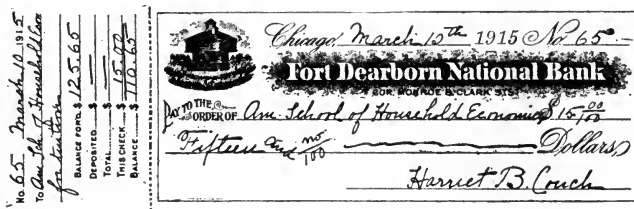 No. 65 March 10 1915
To Am. Sch. of Household Econ
for tuition
BALANCE FORD. $ 125.65
DEPOSITED $
TOTAL $
THIS CHECK $ 15.00
BALANCE $ 110.65
Chicago, March 10th 1915 No. 65
Fort Dearborn National Bank
COR. MONROE & CLARK STS.
PAY TO THE
ORDER OF Am. School of Household Economics $ 15 00/100
Fifteen and no/100 Dollars
Harriet B. Couch